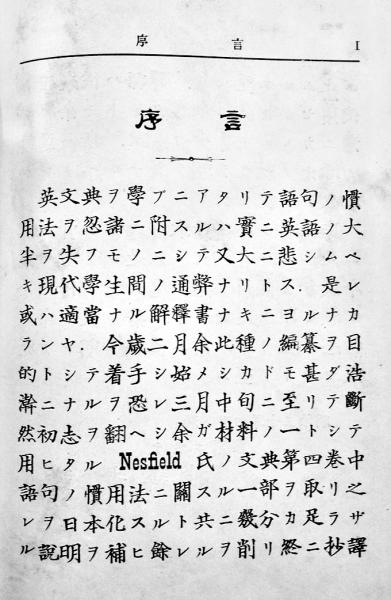 序言 1
序言
英文典ヲ學ブニアタリテ語句ノ慣
用法ヲ忽諸ニ附スルハ實ニ英語ノ大
半ヲ失フモノニシテ又大ニ悲シムベ
キ現代學生間ノ通弊ナリトス. 是レ
或ハ適當ナル解釋書ナキニヨルナカ
ランヤ. 今歲二月余此種ノ編纂ヲ目
的トシテ着手シ始メシカドモ甚ダ浩
澣ニナルヲ恐レ三月中旬ニ至リテ斷
然初志ヲ翻ヘシ余ガ材料ノ一トシテ
用ヒタル Nesfield 氏ノ文典第四卷中
語句ノ慣用法ニ關スル一部ヲ取リ之
レヲ日本化スルト共ニ幾分カ足ラザ
ル說明ヲ補ヒ餘レルヲ削リ終ニ抄譯